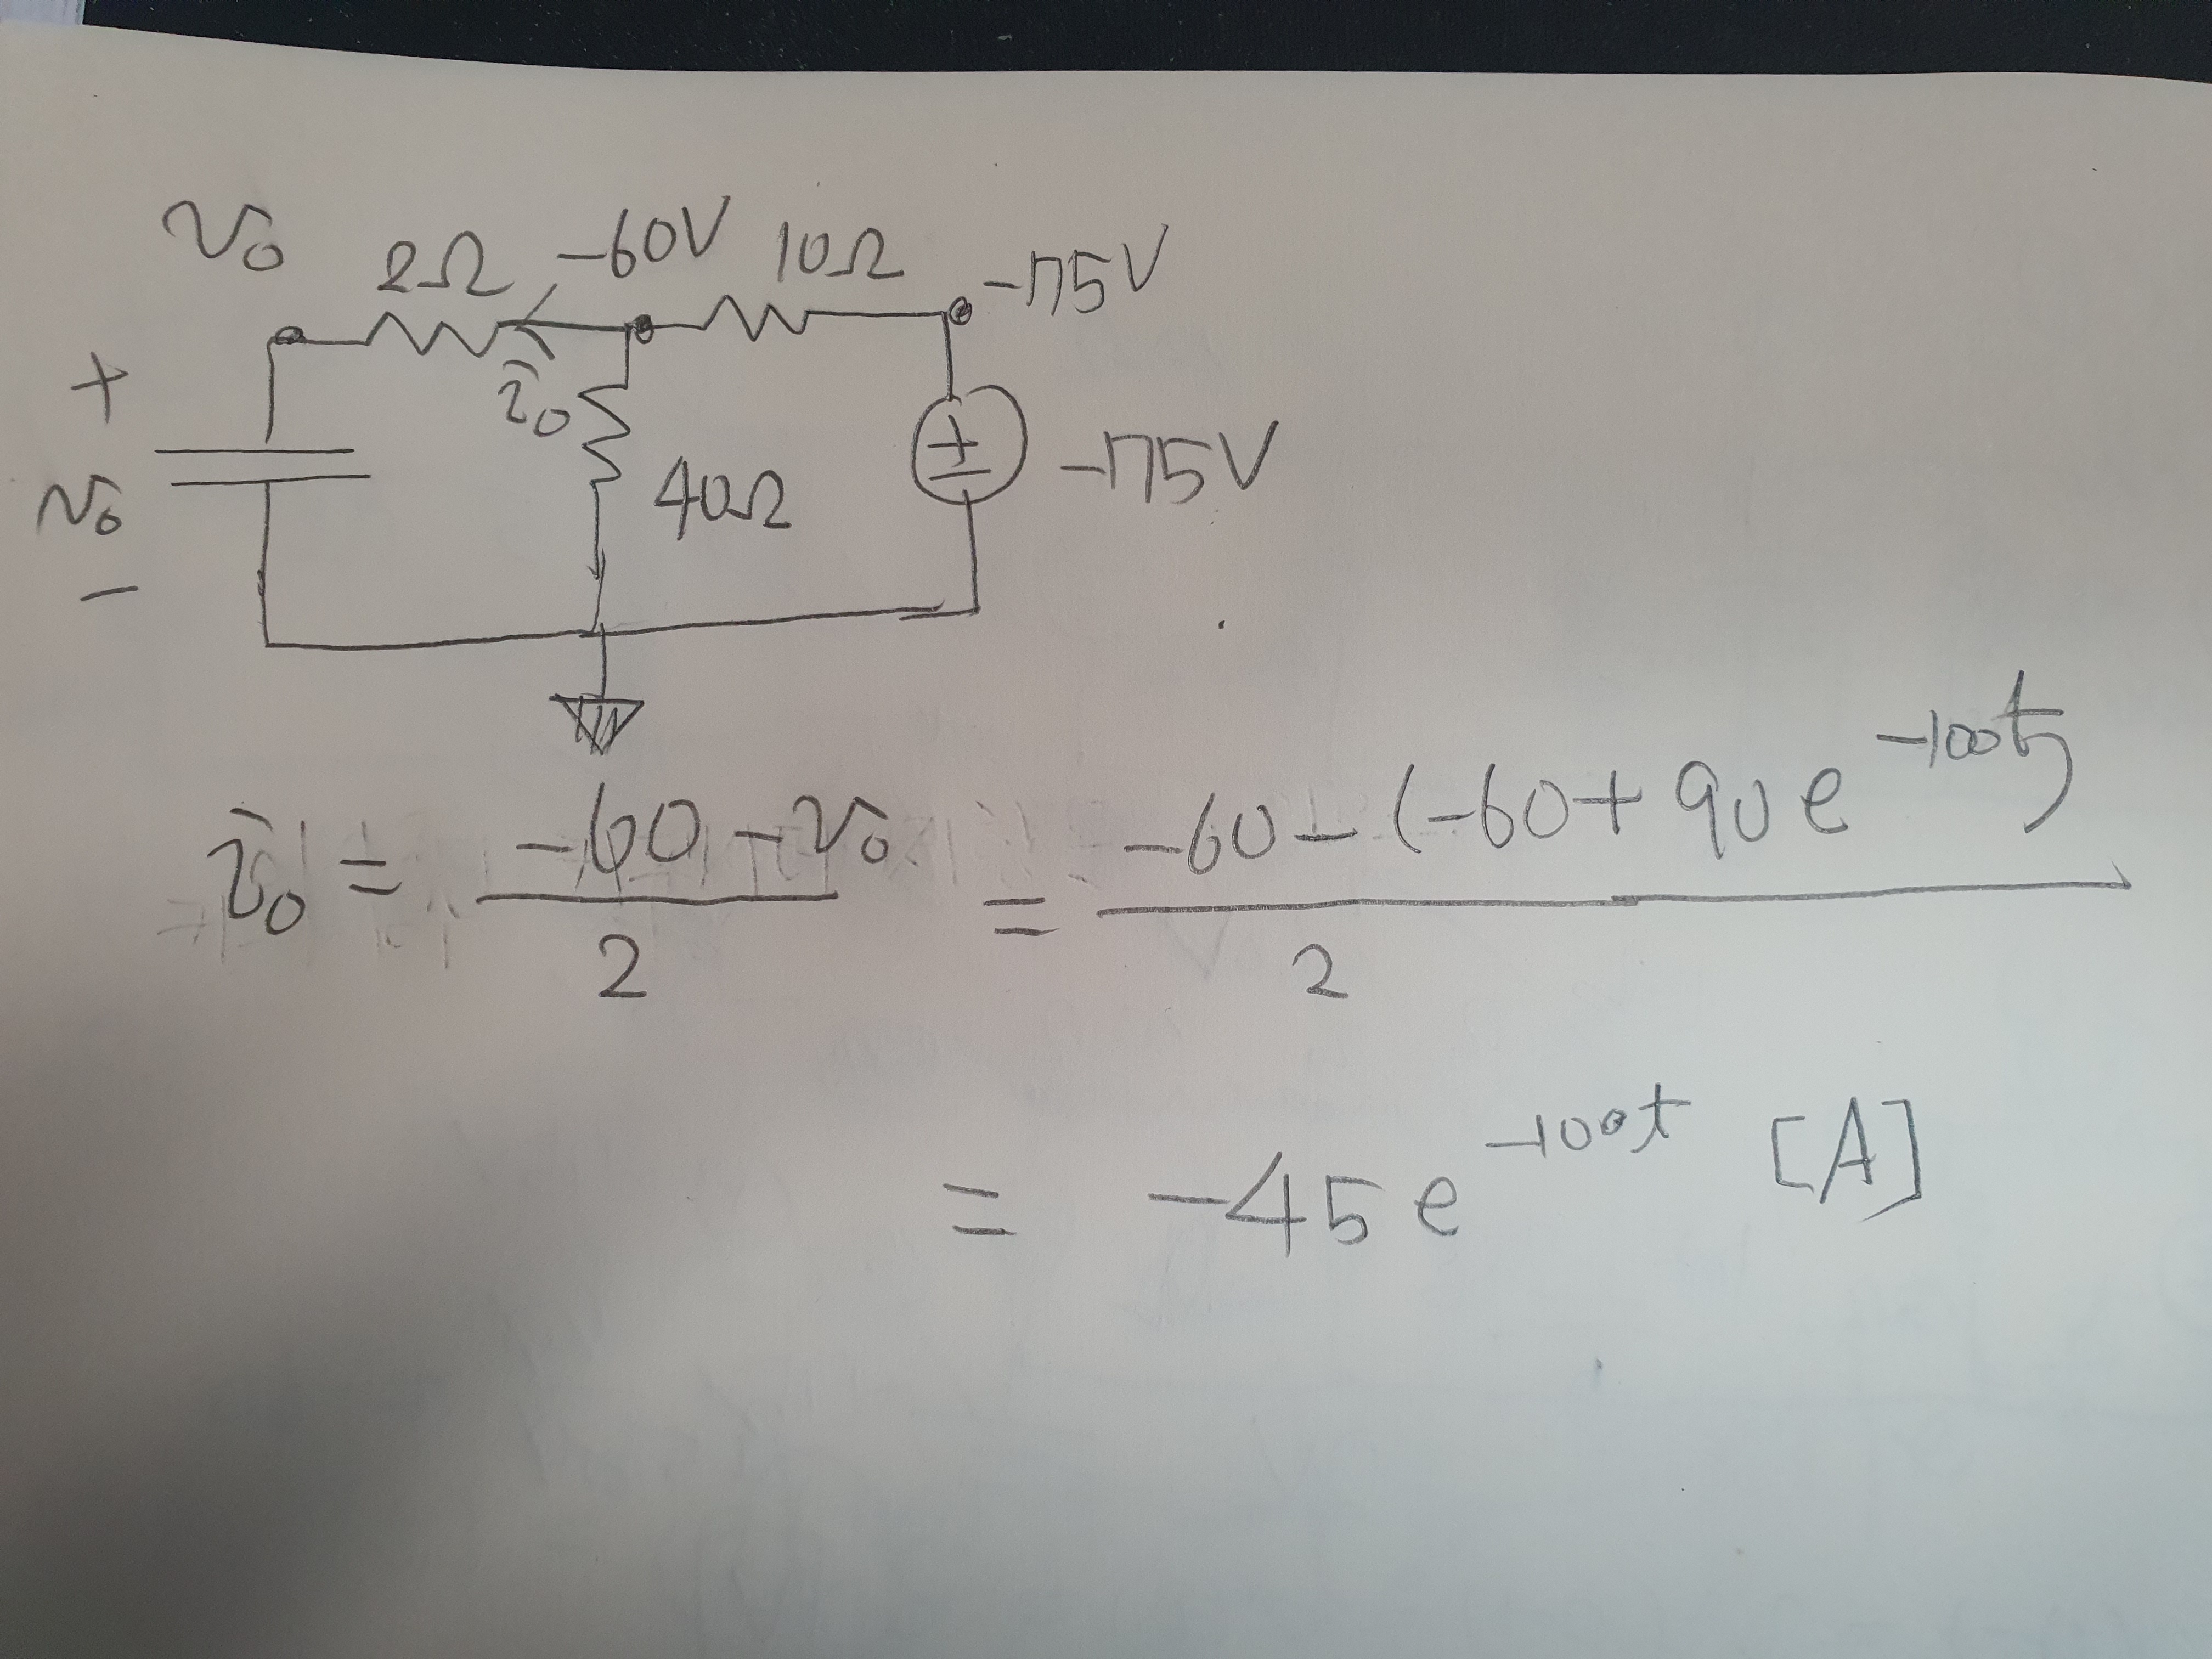 v₀ 2Ω -60V 10Ω -75V
+
i₀
v₀ 40Ω ± -75V
-
i₀ = (-60 - v₀)/2 = (-60 - (-60 + 90e^(-100t)))/2
= -45e^(-100t) [A]